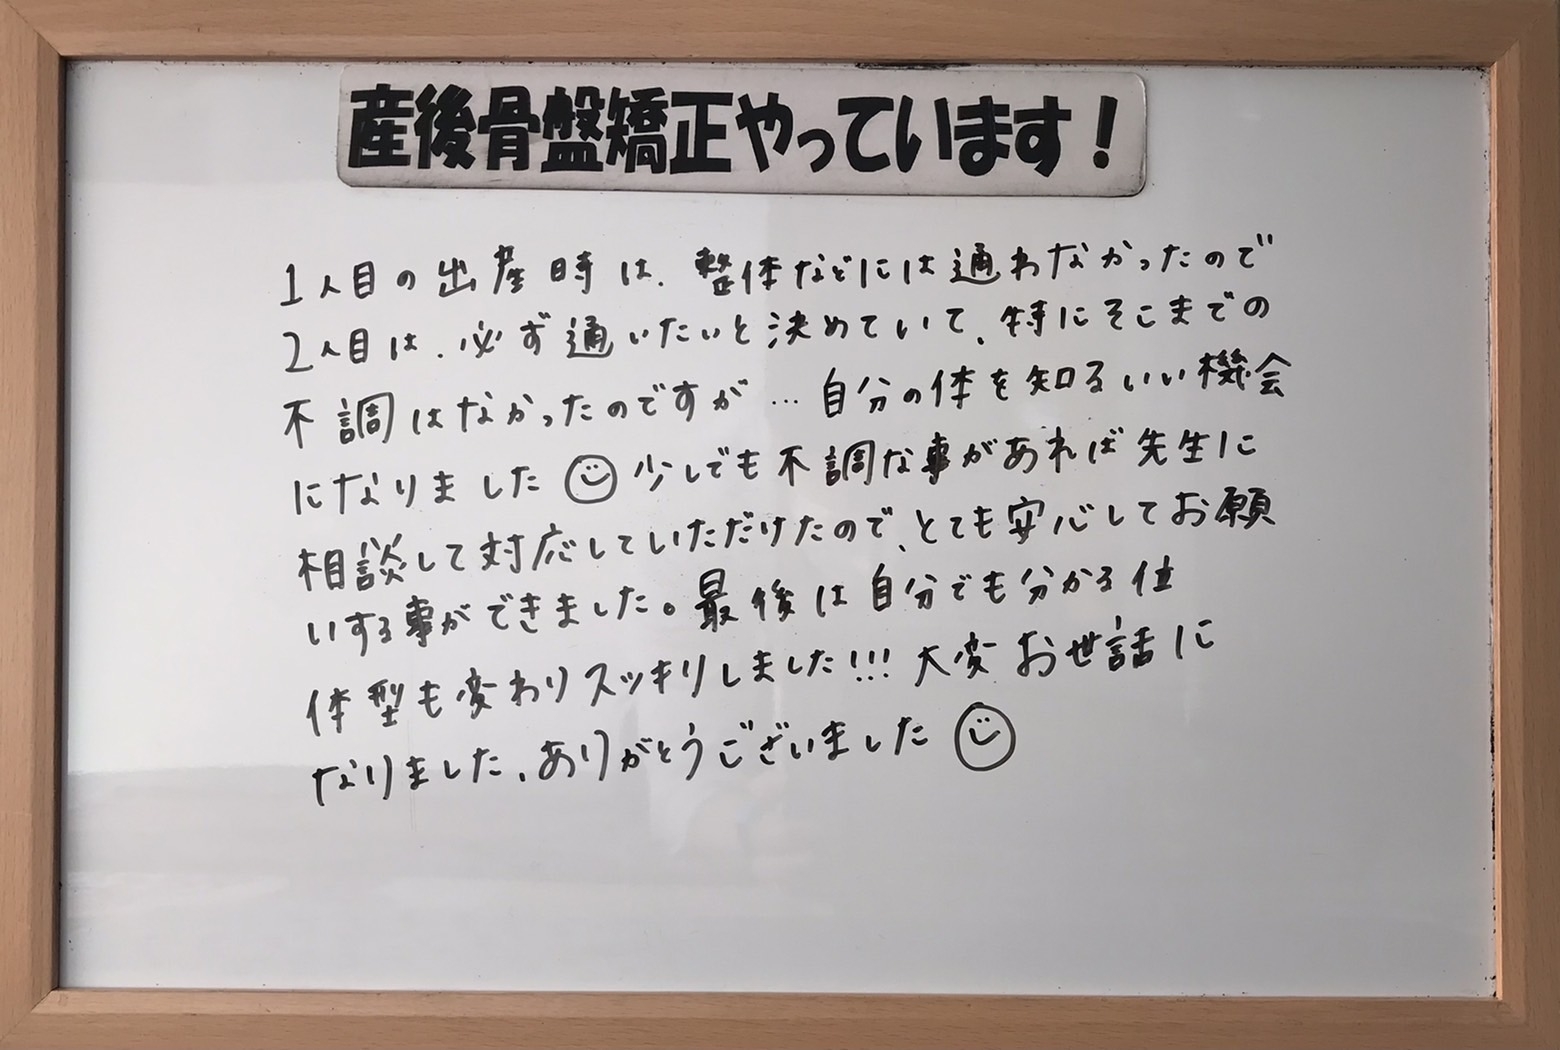 産後骨盤矯正やっています!
1人目の出産時は、整体などには通わなかったので
2人目は、必ず通いたいと決めていて、特にそこまでの
不調はなかったのですが…自分の体を知るいい機会
になりました☺少しでも不調な事があれば先生に
相談して対応していただけたので、とても安心してお願
いする事ができました。最後は自分でも分かる位
体型も変わりスッキリしました!!!大変お世話に
なりました、ありがとうございました☺